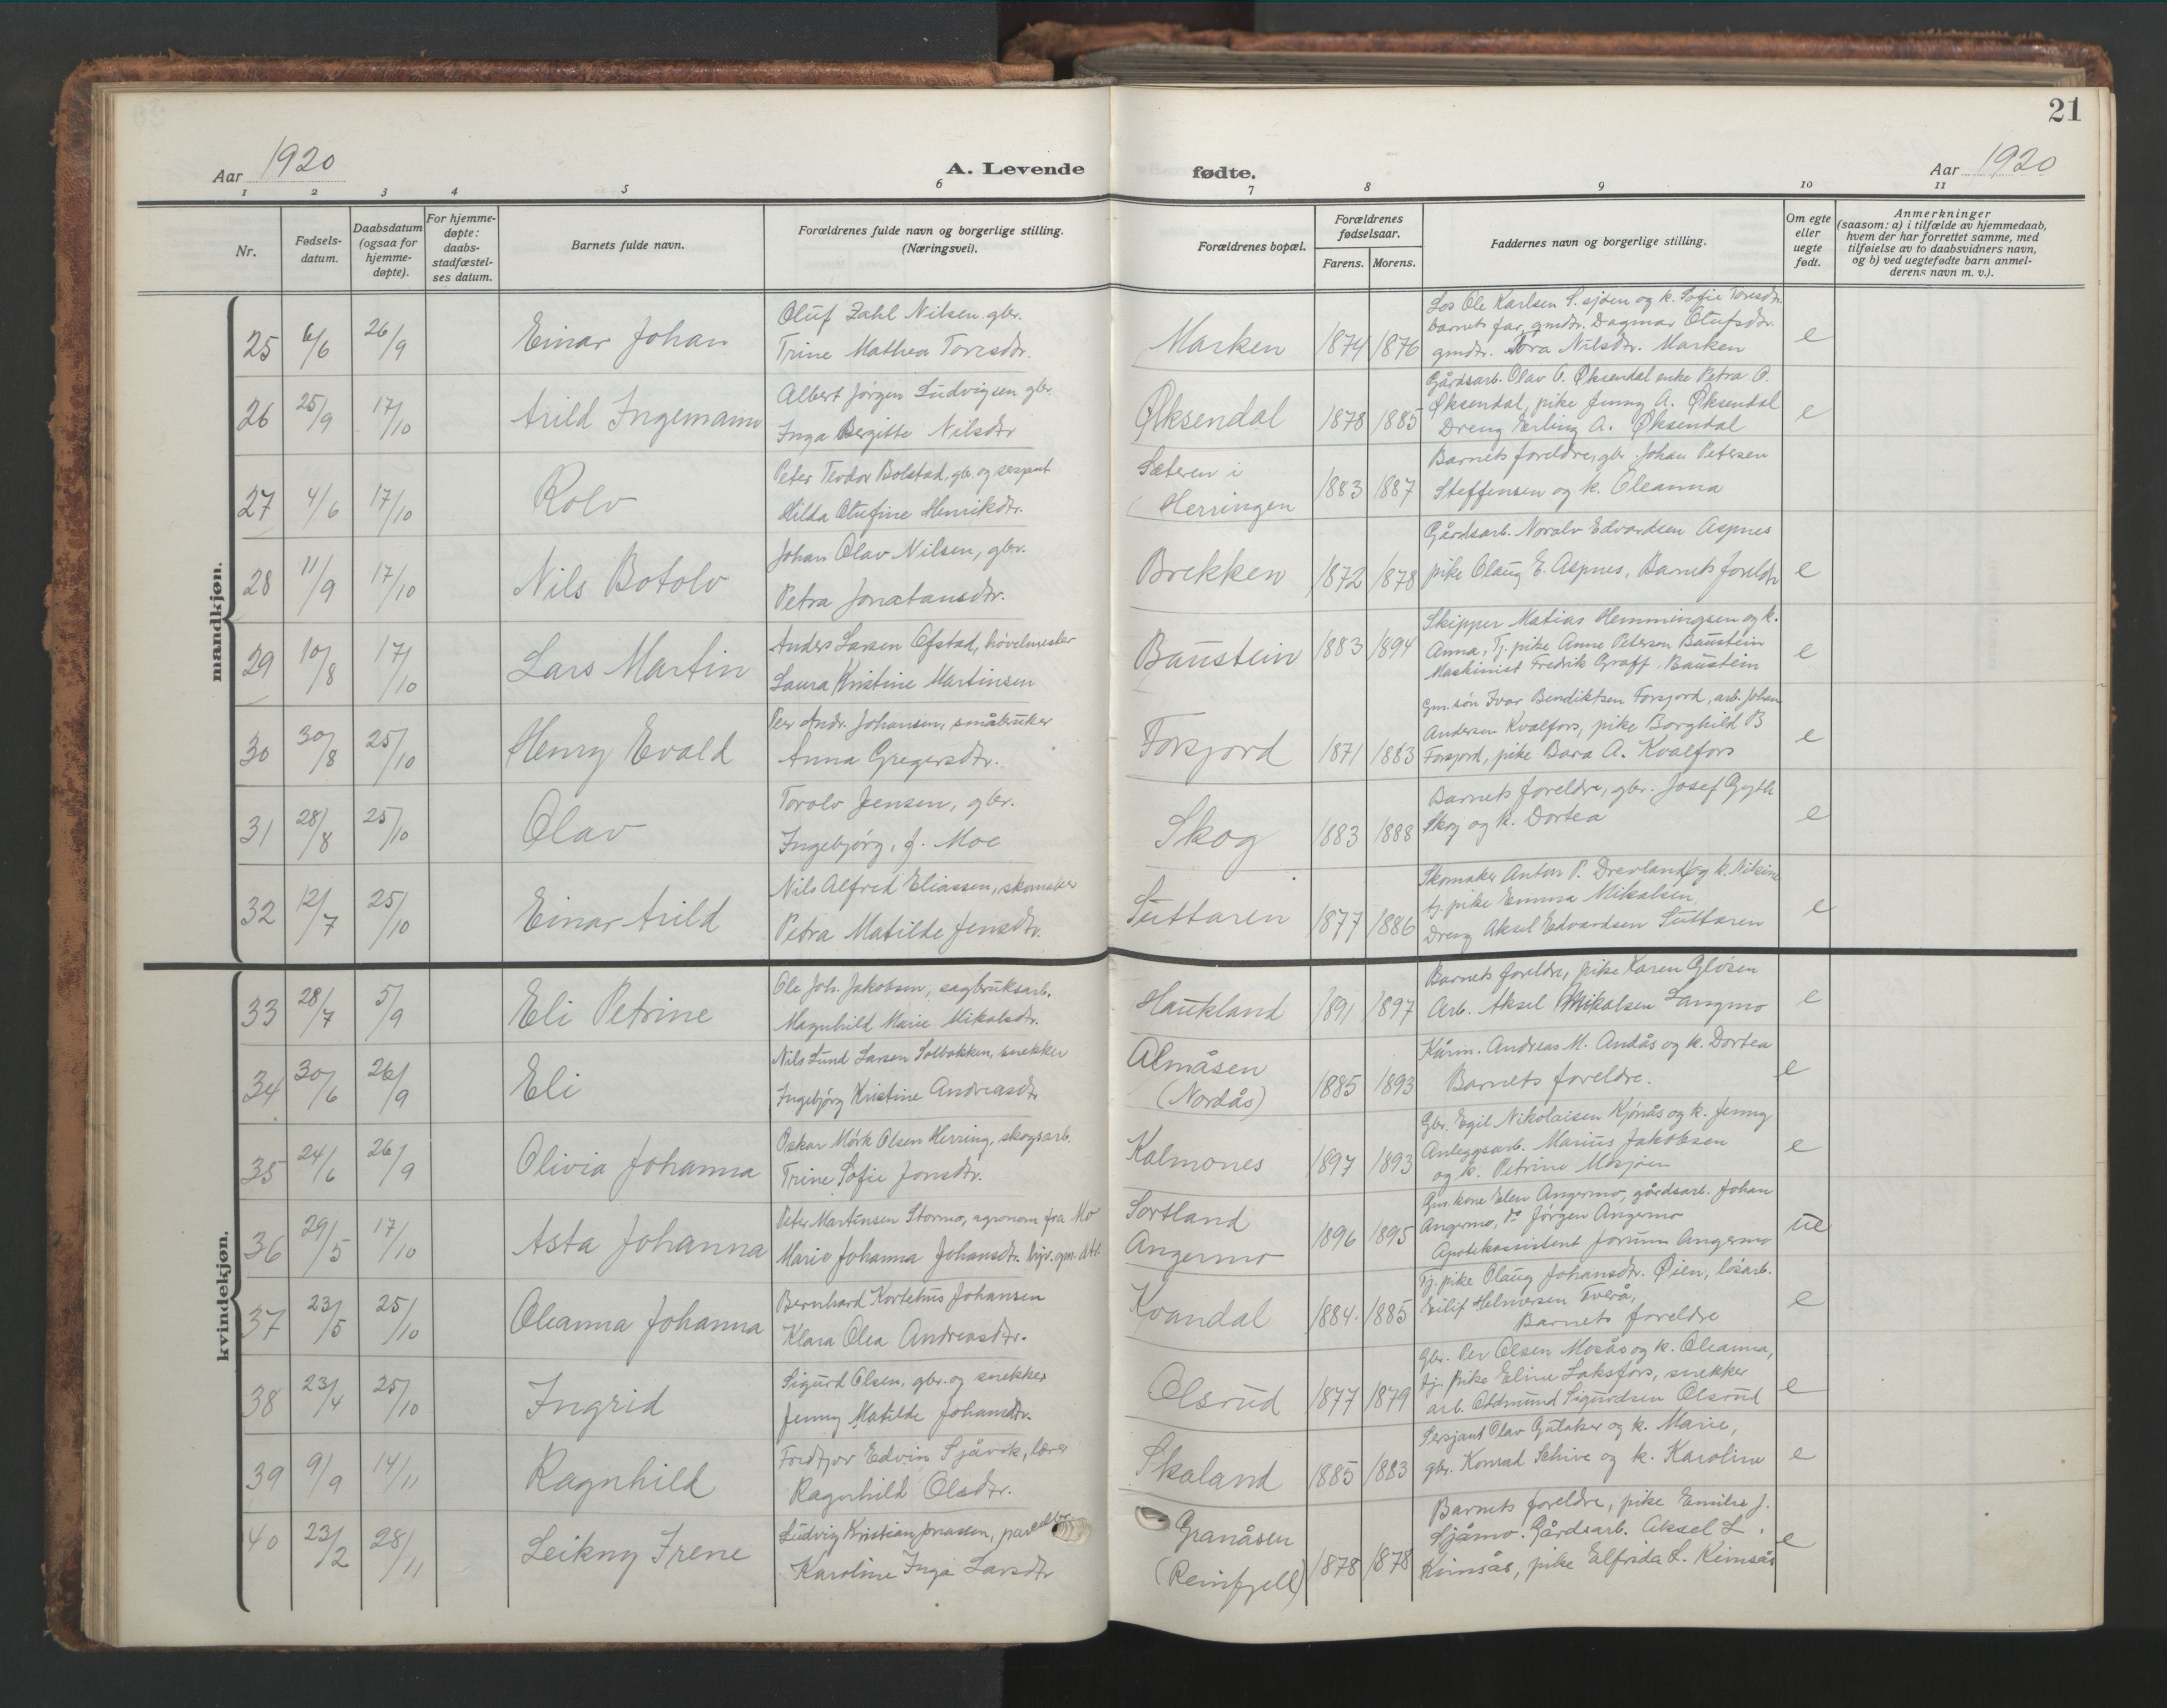 21
Aar 1920
A. Levende fødte.
Aar 1920
1 2 3 4 5 6 7 8 9 10 11
Nr.
Fødsels-
datum.
Daabsdatum
(ogsaa for
hjemme-
døpte).
For hjemme-
døpte:
daabs-
stadfæstel-
ses datum.
Barnets fulde navn.
Forældrenes fulde navn og borgerlige stilling.
(Næringsvei).
Forældrenes bopæl.
Forældrenes
fødselsaar.
Farens. Morens.
Faddernes navn og borgerlige stilling.
Om egte
eller
uegte
født.
Anmerkninger
(saasom: a) i tilfælde av hjemmedaab,
hvem der har forrettet samme, med
tilføielse av to daabsvidners navn,
og b) ved uegtefødte barn anmel-
derens navn m. v.).
mandkjøn.
25 6/6 26/9 Einar Johan
Oluf Zahl Nilsen gbr.
Trine Mathea Toresdtr.
Marken 1874 1876
Los Ole Karlsen S.sjøen og k. Sofie Toresdtr.
barnets far, gmdtr. Dagmar Olufsdtr.
gmdtr. Tora Nilsdtr. Marken
e
26 25/9 17/10 Arild Ingemann
Albert Jørgen Ludvigsen gbr.
Inga Bergitte Nilsdtr
Øksendal 1878 1885
Gårdsarb. Olav O. Øksendal enke Petra O.
Øksendal, pike Jenny A. Øksendal
Dreng Erling A. Øksendal
e
27 4/6 17/10 Rolv
Peter Teodor Bolstad, gbr. og sersjant
Hilda Olufine Henriksdtr.
Sæteren i
Herringen 1883 1887
Barnets foreldre, gbr. Johan Petersen
Steffensen og k. Oleanna
28 11/9 17/10 Nils Botolv
Johan Olav Nilsen, gbr.
Petra Jonatansdtr.
Brekken 1872 1878
Gårdsarb. Noralv Edvardsen Aspnes
pike Olaug E. Aspnes, Barnets foreldre
e
29 10/8 17/10 Lars Martin
Anders Larsen Ofstad, høvelmester
Laura Kristine Martinsen
Baustein 1883 1894
Skipper Matias Hemmingsen og k.
Anna, Tj. pike Anne Peterson Baustein
Maskinist Fredrik Graff. Baustein
e
30 30/8 25/10 Henry Evald
Per Andr. Johansen, småbruker
Anna Gregersdtr.
Forsjord 1871 1883
Gm. søn Ivar Bendiktsen Forsjord, arb. Johan
Andersen Kvalfors, pike Borghild B
Forsjord, pike Bara A. Kvalfors
e
31 28/8 25/10 Olav
Torolv Jensen, gbr.
Ingebjørg, f. Moe
Skog 1883 1888
Barnets foreldre, gbr. Josef
Skog og k. Dortea
e
32 12/7 25/10 Einar Arild
Nils Alfred Eliassen, skomaker
Petra Matilde Jensdtr.
Luttaren 1877 1886
Skomaker Anton P. Drevland og k. Nilsine
tj. pike Emma Mikalsen,
Dreng Aksel Edvardsen Luttaren
e
kvindekjøn.
33 28/7 5/9 Eli Petrine
Ole Joh. Jakobsen, sagbruksarb.
Magnhild Marie Mikalsdtr.
Haukland 1891 1897
Barnets foreldre, pike Karen Gløsen
Arb. Aksel Mikalsen Langmo
e
34 30/6 26/9 Eli
Nils Lund Larsen Solbakken, snekker
Ingebjørg Kristine Andreasdtr
Almåsen
(Nordås) 1885 1893
Kårm. Andreas M. Andås og k. Dortea
Barnets foreldre.
e
35 24/6 26/9 Olivia Johanna
Oskar Mörk Olsen Herring, skogsarb.
Trine Sofie Jonsdtr.
Kalmones 1897 1893
Gbr. Egil Nikolaisen Kjønås og k. Jenny
Anleggsarb. Marius Jakobsen
og k. Petrine Mosjøen
e
36 29/5 17/10 Asta Johanna
Peter Martinsen Stormo, agronom fra Mo
Marie Johanna Johansdtr.
Sortland
Angermo 1896 1895
Gm. kone Elen Angermo, gårdsarb. Johan
Angermo, do Jørgen Angermo
Apotekassistent Jorunn Angermo
ue
37 23/5 25/10 Oleanna Johanna
Bernhard Kortehus Johansen
Klara Olea Andreasdtr.
Kvandal 1884 1885
Tj. pike Olaug Johansdtr. Øien, løsarb.
Eilif Helmersen Tverå,
Barnets foreldre
e
38 23/4 25/10 Ingrid
Sigurd Olsen, gbr. og snekker
Jenny Matilde Johansdtr.
Olsrud 1877 1879
Gbr. Per Olsen Mosås og k. Oleanna,
tj. pike Eline Laksfors, snekker
arb. Oddmund Sigurdsen Olsrud
e
39 9/9 14/11 Ragnhild
Fredtjov Edvin Sjåvik, lærer
Ragnhild Olsdtr.
Skaland 1885 1883
Sersjant Olav Gutaker og k. Marie,
gbr. Konrad Schive og k. Karoline
e
40 23/2 28/11 Leikny Irene
Ludvig Kristian Jonassen,
Karoline Inga Larsdtr
Granåsen
(Reinfjell) 1878 1878
Barnets foreldre, pike Emilie J.
Sjåmo. Gårdsarb. Aksel L.
Kimsås, pike Elfrida L. Kimsås
e